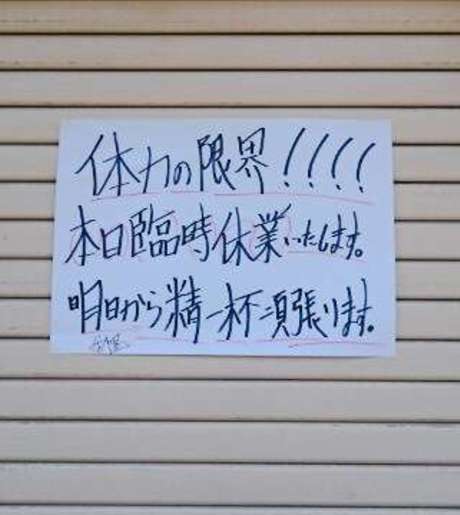 体力の限界!!!!
本日臨時休業いたします。
明日から精一杯頑張ります。